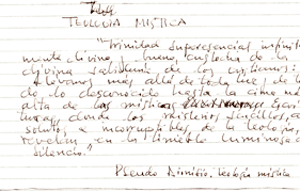 TEOLOGIA MISTICA
"Trinidad superesencial, infinita
mente divina y buena, custodia de la
divina sabiduría de los cristianos:
llévanos más allá de toda luz y de to
do lo desconocido hasta la cima más
alta de las místicas Escri
turas, donde los misterios sencillos, ab
solutos e incorruptibles de la teología
revelan en la tiniebla luminosa
silencio."
Pseudo Dionisio, teología mística